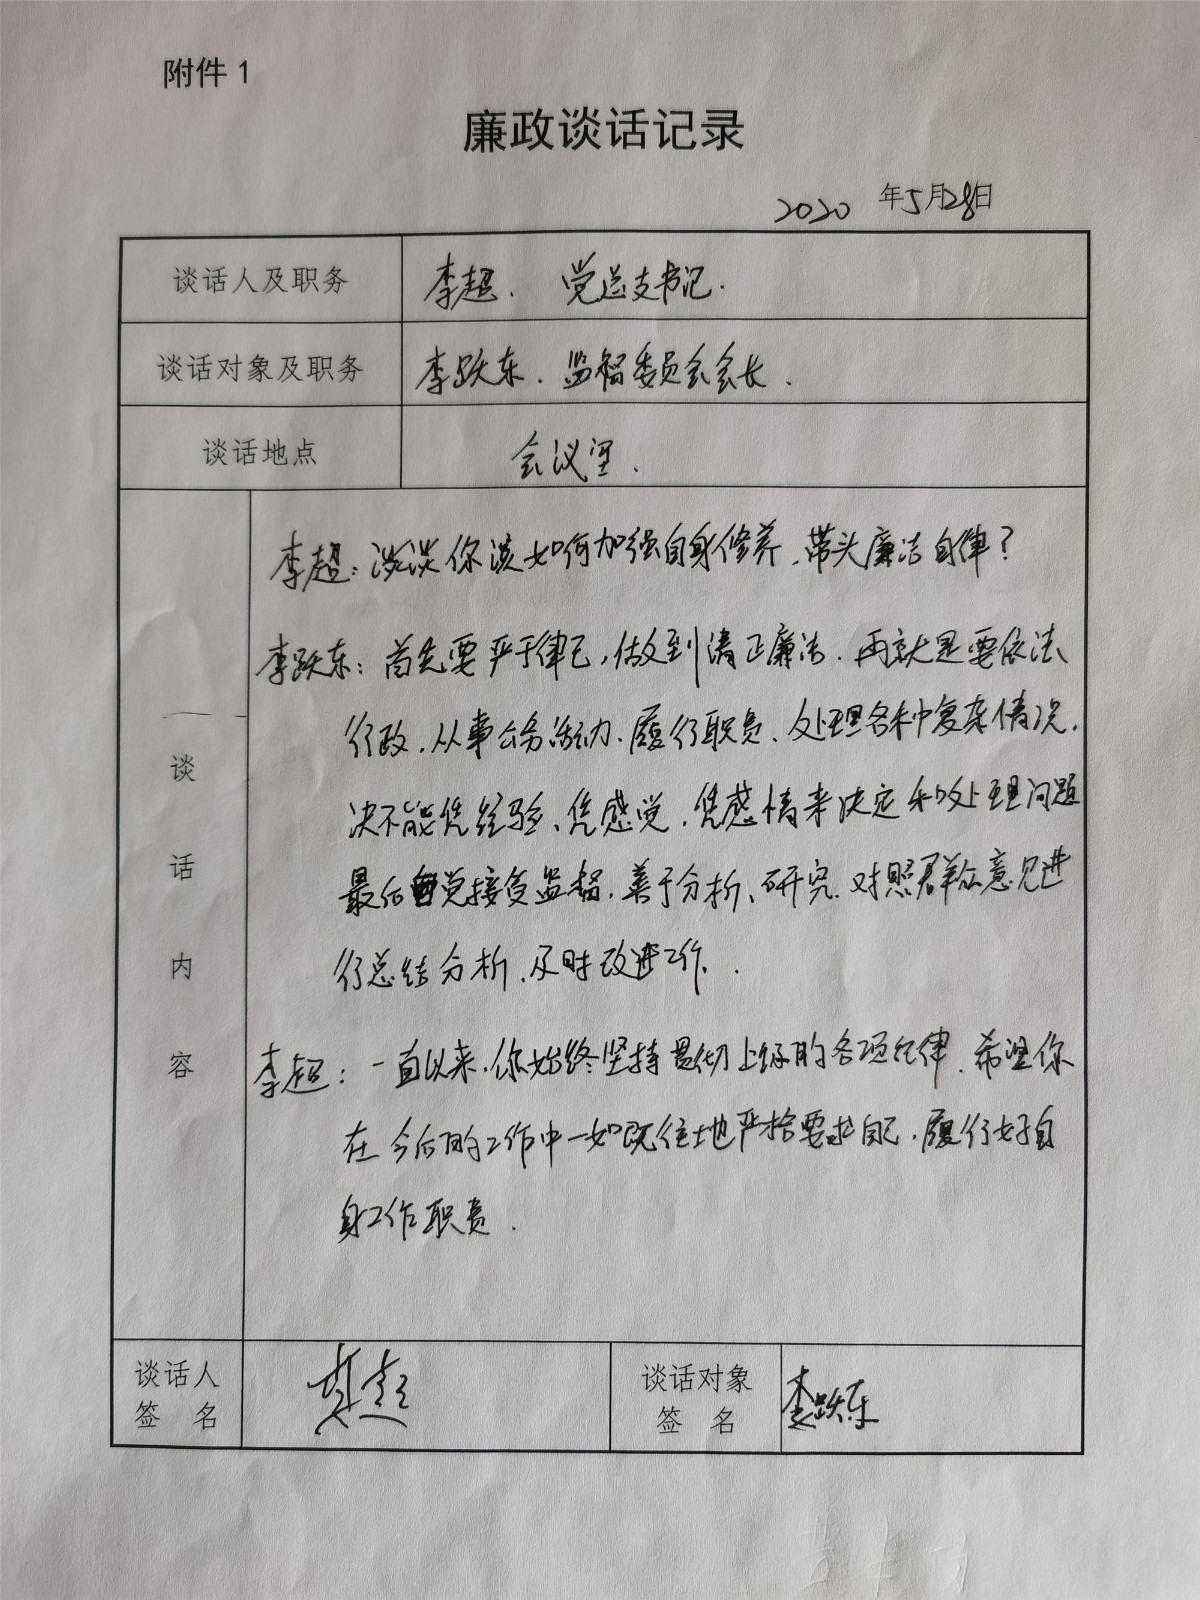 附件 1
廉政谈话记录
2020 年5月28日
谈话人及职务 李超. 党总支书记.
谈话对象及职务 李跃东. 监督委员会会长.
谈话地点 会议室.
谈话内容
李超: 谈谈你该如何加强自身修养,带头廉洁自律?
李跃东: 首先要严于律己,做到清正廉洁.再就是要依法
行政.从事公务活动、履行职责、处理各种复杂情况.
决不能凭经验、凭感觉.凭感情来决定和处理问题
最后自觉接受监督.善于分析、研究.对照群众意见进
行总结分析,及时改进工作.
李超: 一直以来.你始终坚持贯彻上级的各项纪律.希望你
在今后的工作中一如既往地严格要求自己.履行好自
身工作职责.
谈话人 谈话对象
签 名 李超 签 名 李跃东